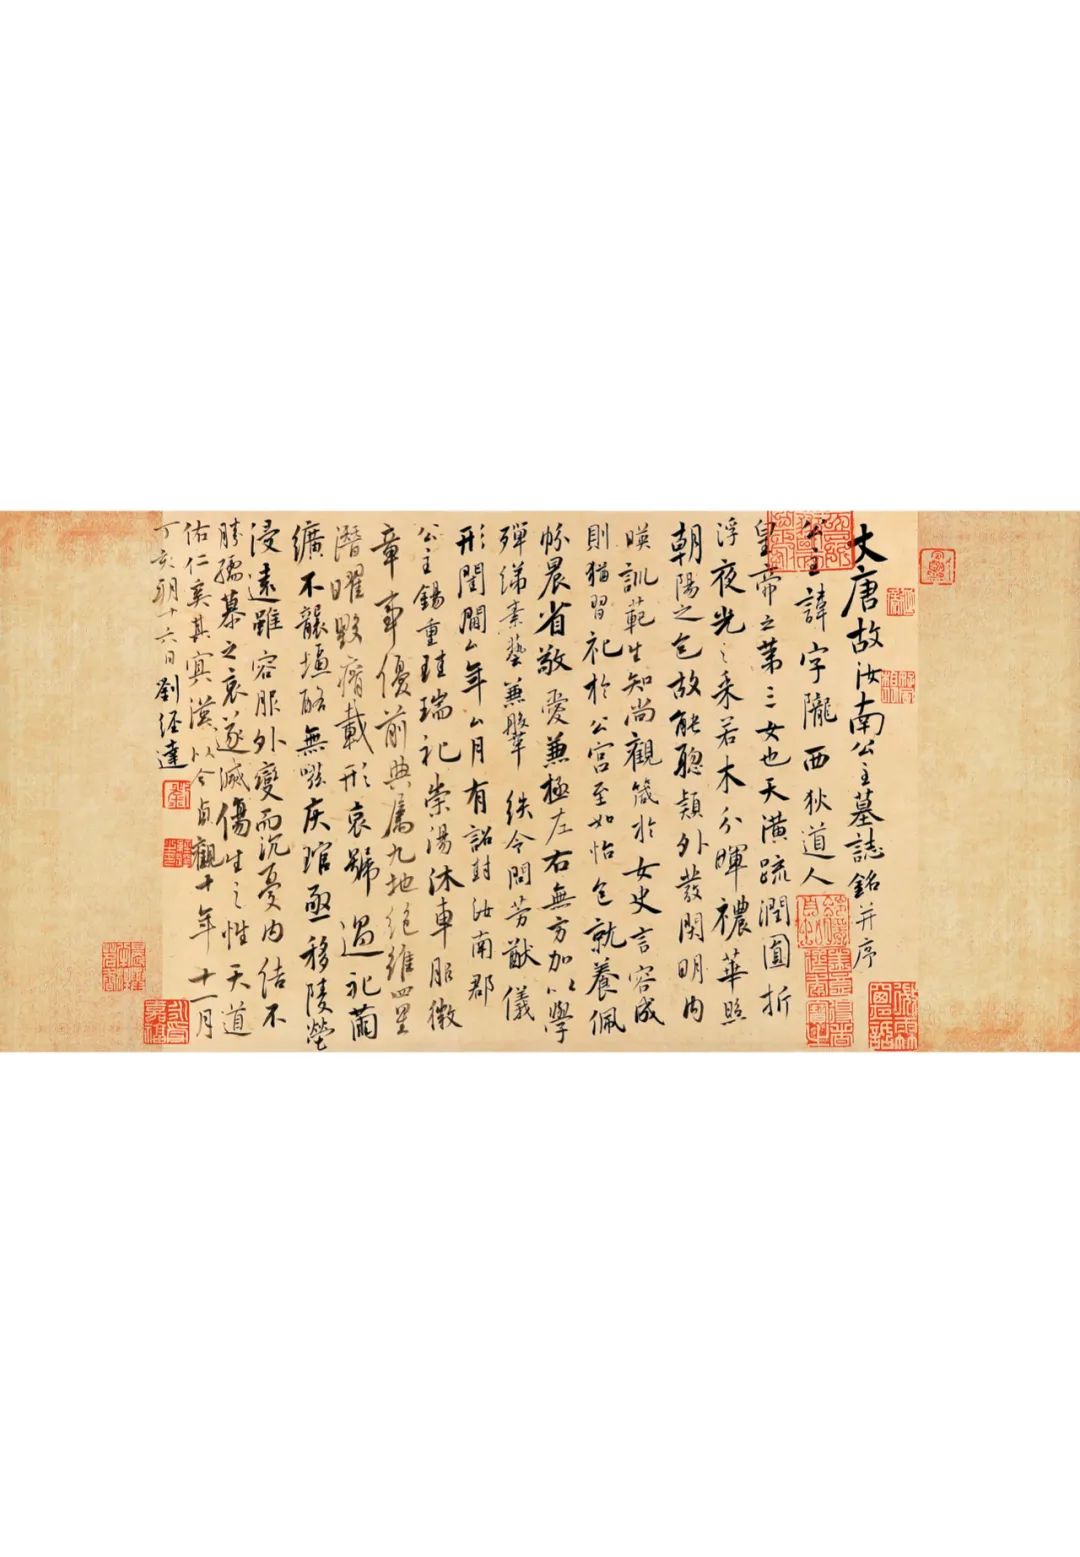 大唐故汝南公主墓誌銘并序
公主諱字隴西狄道人
皇帝之第三女也天潢疏潤圓折
浮夜光之采若木分暉穠華照
朝陽之色故能聰穎外發閑明內
暎訓範生知尚觀箴於女史言容成
則猶習祀於公宮至如怡色就養佩
帉晨省敬愛兼極左右無方加以學
殫綈素藝兼鞶紩令問芳猷儀
形閨閫ㅿ年ㅿ月有詔封汝南郡
公主錫重珪瑞祀崇湯沐車服徽
章事優前典屬九地絕維四星
潛曜毀瘠載形哀號過祀繭
纊不襲塩酪無嗞灰琯亟移陵塋
浸遠雖容服外變而沉憂內結不
勝孺慕之哀遂滅傷生之性天道
佑仁奚其冥漠以今貞觀十年十一月
丁亥朔十六日劉經達